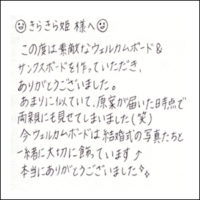 きらきら姫 様へ
この度は素敵なウェルカムボード&
サンクスボードを作っていただき、
ありがとうございました。
あまりに似ていて、原案が届いた時点で
両親にも見せてしまいました(笑)
今ウェルカムボードは結婚式の写真たちと
一緒に大切に飾っています♪
本当にありがとうございました